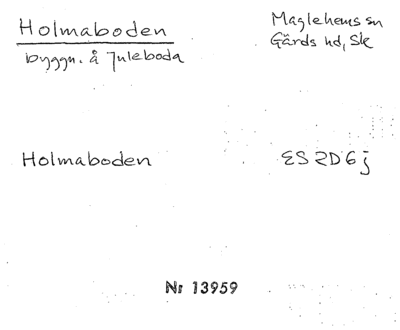 Holmaboden
Maglehems sn
byggn. å Juleboda
Gärds hd, Sk
Holmaboden
ES 2D6j
Nr 13959